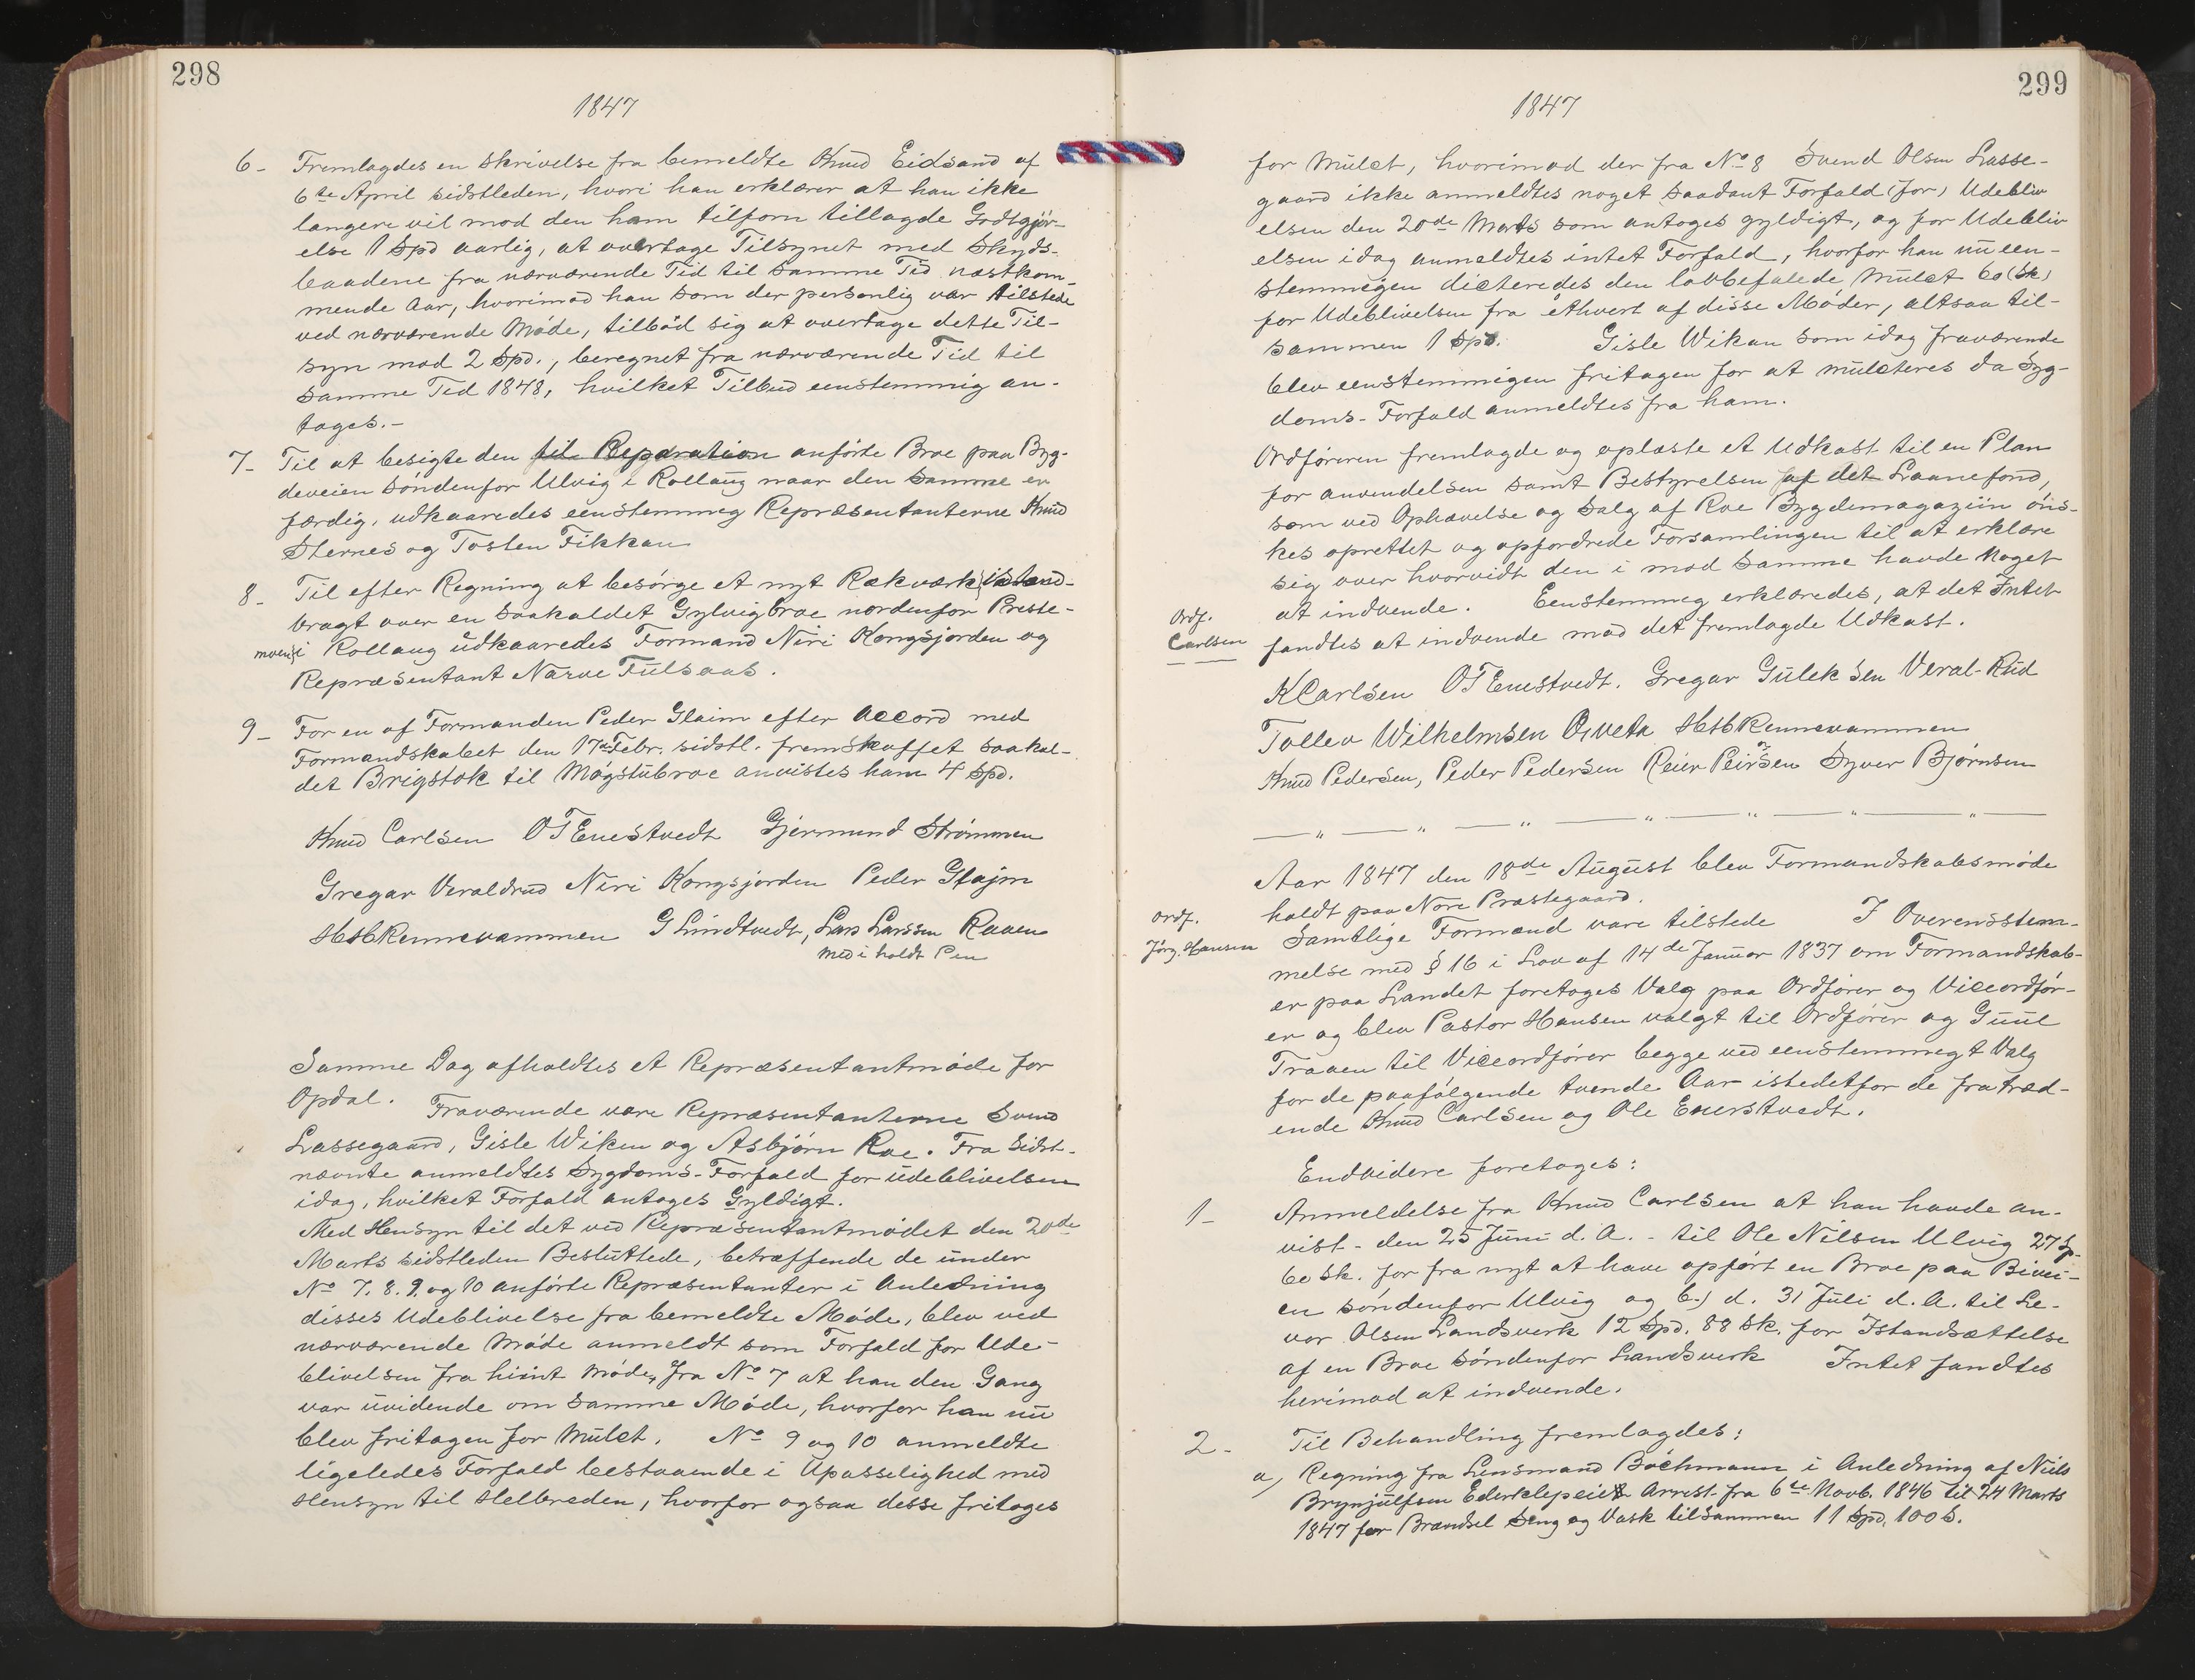 298
1847
6- Fremlagdes en Skrivelse fra bemeldte Knud Eidsand af
6te April sidstleden, hvori han erklærer at han ikke
længere vil mod den ham tilforn tillagde Godtgjør-
else 1 Spd aarlig, at overtage Tilsynet med Skyds-
baadene fra nærværende Tid til samme Tid næstkom-
mende Aar, hvorimod han som der personlig var tilstede
ved nærværende Møde, tilbød sig at overtage dette Til-
syn mod 2 Spd., beregnet fra nærværende Tid til
samme Tid 1848, hvilket Tilbud eenstemmig an-
toges.-
7- Til at besigte den til Reparation anførte Broe paa Byg-
deveien søndenfor Ulvig i Rollaug naar den samme er
færdig, udkaaredes eenstemmig Repræsentanterne Knud
Sternes og Tosten Fikkan
8- Til efter Regning at besørge et nyt Rækværk istand-
bragt over en saakaldet Gylvigbroe nordenfor Preste-
moen i Rollaug udkaaredes Formand Niri Kongsjorden og
Repræsentant Narve Fulsaas.
9- For en af Formanden Peder Glaim efter Accord med
Formandskabet den 17de Febr. sidstl. fremskaffet saakal-
det Brigstok til Møgstubroe anvistes ham 4 Spd.
Knud Carlsen OTEnestvedt Gjermund Strømmen
Gregar Veraldrud Niri Kongsjorden Peder Glajm
HHRennevammen G Lindtvedt, Lars Larssen Raaen
med i holdt Pen
Samme Dag afholdtes et Repræsentantmøde for
Opdal. Fraværende vare Repræsentanterne Svend
Lassegaard, Gisle Wiken og Asbjørn Roe. Fra Sidst-
nævnte anmeldtes Sygdoms-Forfald for udeblivelsen
idag, hvilket Forfald antoges Gyldigt.
Med Hensyn til det ved Repræsentantmødet den 20de
Marts sidstleden Besluttede, betræffende de under
No 7. 8. 9. og 10 anførte Repræsentanter i Anledning
disses Udeblivelse fra bemeldte Møde, blev ved
nærværende Møde anmeldt som Forfald for Ude-
blivelsen fra hiint Møde, fra No 7 at han den Gang
var uvidende om samme Møde, hvorfor han nu
blev fritagen for Mulct. No 9 og 10 anmeldte
ligeledes Forfald bestaaende i Upasselighed med
Hensyn til Helbreden, hvorfor ogsaa desse fritoges
299
1847
for Mulct, hvorimod der fra No 8 Svend Olsen Lasse-
gaard ikke anmeldtes noget saadant Forfald (for) Udebliv
elsen den 20de Marts som antoges gyldigt, og for Udebliv
elsen idag anmeldtes intet Forfald, hvorfor han nu een-
stemmigen dicteredes den lovbefalede Mulct 60 (Sk)
for Udeblivelsen fra ethvert af disse Møder, altsaa til-
sammen 1 Spd. Gisle Wikan som idag fraværende
blev eenstemmigen fritagen for at mulcteres da Syg-
doms-Forfald anmeldtes fra ham.
Ordføreren fremlagde og oplæste et Udkast til en Plan
for anvendelsen samt Bestyrelsen af det Laanefond,
som ved Ophævelse og Salg af Roe Bygdemagaziin øns-
kes oprettet og opfordrede Forsamlingen til at erklære
sig over hvorvidt den i mod samme havde Noget
at indvende. Eenstemmig erklæredes, at det Intet
Ordf.
Carlsen
fandtes at indvende mod det fremlagde Udkast.
KCarlsen OTEnestvedt. Gregar Guleksen Veral-Rud
Tollev Wilhelmsen Qveta HHRennevammen
Knud Pedersen, Peder Pedersen Reier Peirsen Syver Bjørnsen
Aar 1847 den 18de August blev Formandskabsmøde
holdt paa Nore Præstegaard.
Ordf.
Jørg. Hansen
Samtlige Formænd vare tilstede I Overensstem-
melse med § 16 i Lov af 14de Januar 1837 om Formandskab-
er paa Landet foretoges Valg paa Ordfører og Viceordfør-
er og blev Pastor Hansen valgt til Ordfører og Guul
Traaen til Viceordfører begge ved eenstemmigt Valg
for de paafølgende tvende Aar istedetfor de fratræd-
ende Knud Carlsen og Ole Enerstvedt.
Endvidere foretoges:
1- Anmeldelse fra Knud Carlsen at han havde an-
vist - den 25 Juni d. A. - til Ole Nilsen Ulvig 27 Sp.
60 Sk. for fra nyt at have opført en Broe paa Bivei-
en søndenfor Ulvig og b.) d. 31 Juli d. A. til Le-
vor Olsen Landsverk 12 Spd. 88 Sk. for Istandsættelse
af en Broe søndenfor Landsverk Intet fandtes
herimod at indvende.
2- Til Behandling fremlagdes:
a) Regning fra Lensmand Bøchmann i Anledning af Niels
Brynjulfsen Ederklepeiets Arrest fra 6te Novb. 1846 til 24 Marts
1847 for Brændsel Seng og Vask tilsammen 11 Spd. 100 S.